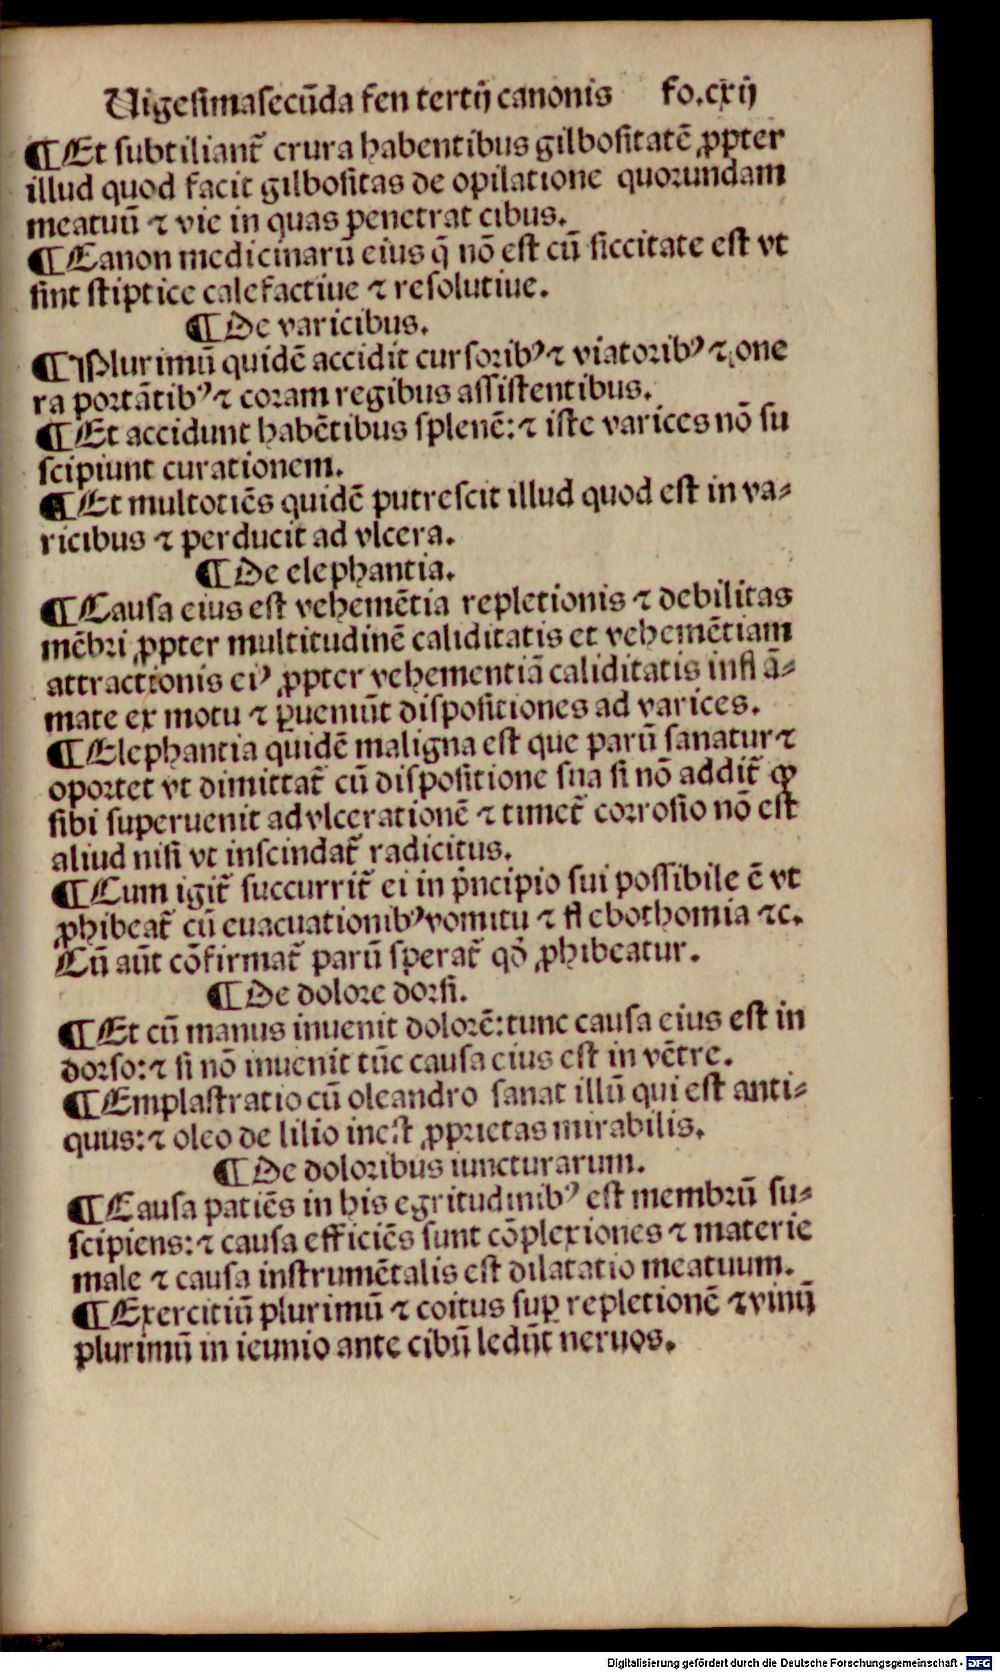 Uigesimasecūda fen tertij canonis fo.cxij
¶Et subtiliant̃ crura habentibus gilbositatē ꝓpter
illud quod facit gilbositas de opilatione quorundam
meatuū ⁊ vie in quas penetrat cibus.
¶Canon medicinarū eius q̄ nō est cū siccitate est vt
sint stiptice calefactiue ⁊ resolutiue.
¶De varicibus.
¶Plurimū quidē accidit cursoribꝰ ⁊ viatoribꝰ ⁊ one
ra portātibꝰ ⁊ coram regibus assistentibus.
¶Et accidunt habētibus splenē: ⁊ iste varices nō su
scipiunt curationem.
¶Et multotiēs quidē putrescit illud quod est in va⸗
ricibus ⁊ perducit ad vlcera.
¶De elephantia.
¶Causa eius est vehemētia repletionis ⁊ debilitas
mēbri ꝓpter multitudinē caliditatis et vehemētiam
attractionis eiꝰ ꝓpter vehementiā caliditatis inflā⸗
mate ex motu ⁊ ꝑueniūt dispositiones ad varices.
¶Elephantia quidē maligna est que parū sanatur ⁊
oportet vt dimittat̃ cū dispositione sua si nō addit̃ ꝙ
sibi superuenit ad vlcerationē ⁊ timet̃ corrosio nō est
aliud nisi vt inscindat̃ radicitus.
¶Cum igit̃ succurrit̃ ei in pͥncipio sui possibile ē vt
ꝓhibeat̃ cū euacuationibꝰ vomitu ⁊ flebothomia ⁊c.
Cū aūt cōfirmat̃ parū sperat̃ qđ ꝓhibeatur.
¶De dolore dorsi.
¶Et cū manus inuenit dolorē: tunc causa eius est in
dorso: ⁊ si nō inuenit tūc causa eius est in vētre.
¶Emplastratio cū oleandro sanat illū qui est anti⸗
quus: ⁊ oleo de lilio inest ꝓprietas mirabilis.
¶De doloribus iuncturarum.
¶Causa patiēs in his egritudinibꝰ est membrū su⸗
scipiens: ⁊ causa efficiēs sunt cōplexiones ⁊ materie
male ⁊ causa instrumētalis est dilatatio meatuum.
¶Exercitiū plurimū ⁊ coitus suꝑ repletionē ⁊ vinū
plurimū in ieunio ante cibū ledūt neruos.
Digitalisierung gefördert durch die Deutsche Forschungsgemeinschaft - DFG